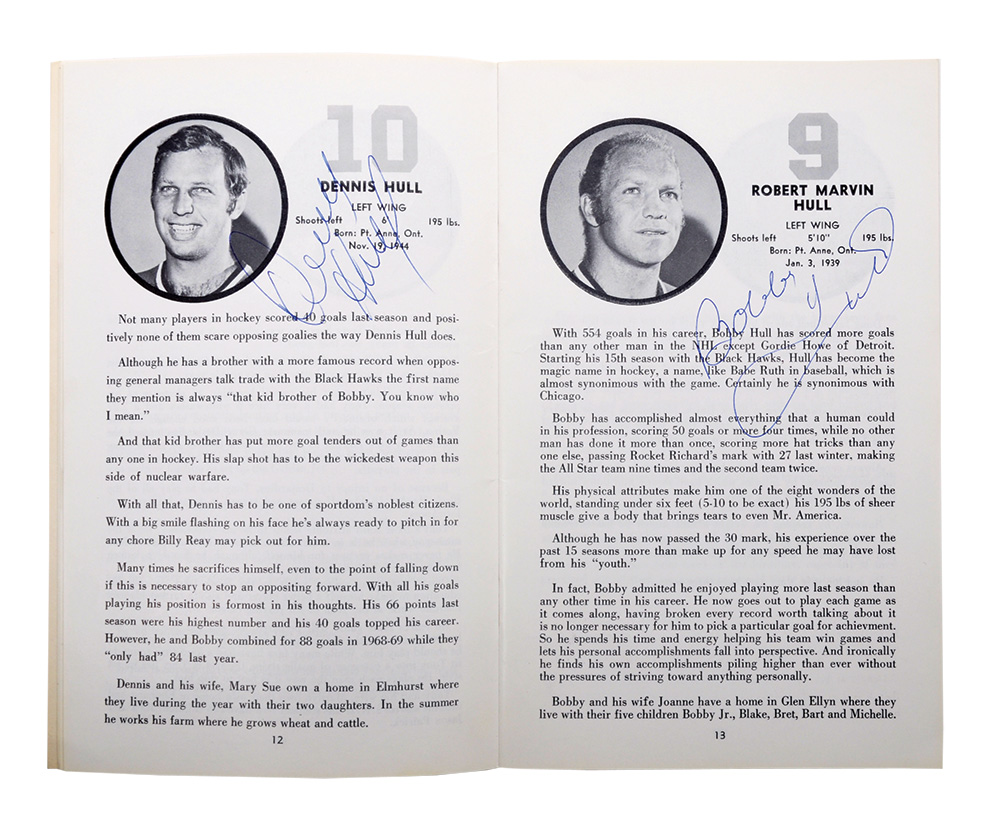 10
DENNIS HULL
LEFT WING
Shoots left 6' 195 lbs.
Born: Pt. Anne, Ont.
Nov. 19, 1944
Dennis Hull
Not many players in hockey scored 40 goals last season and posi-
tively none of them scare opposing goalies the way Dennis Hull does.
Although he has a brother with a more famous record when oppos-
ing general managers talk trade with the Black Hawks the first name
they mention is always "that kid brother of Bobby. You know who
I mean."
And that kid brother has put more goal tenders out of games than
any one in hockey. His slap shot has to be the wickedest weapon this
side of nuclear warfare.
With all that, Dennis has to be one of sportdom's noblest citizens.
With a big smile flashing on his face he's always ready to pitch in for
any chore Billy Reay may pick out for him.
Many times he sacrifices himself, even to the point of falling down
if this is necessary to stop an oppositing forward. With all his goals
playing his position is formost in his thoughts. His 66 points last
season were his highest number and his 40 goals topped his career.
However, he and Bobby combined for 88 goals in 1968-69 while they
"only had" 84 last year.
Dennis and his wife, Mary Sue own a home in Elmhurst where
they live during the year with their two daughters. In the summer
he works his farm where he grows wheat and cattle.
12
9
ROBERT MARVIN
HULL
LEFT WING
Shoots left 5'10" 195 lbs.
Born: Pt. Anne, Ont.
Jan. 3, 1939
Bobby Hull
With 554 goals in his career, Bobby Hull has scored more goals
than any other man in the NHL except Gordie Howe of Detroit.
Starting his 15th season with the Black Hawks, Hull has become the
magic name in hockey, a name, like Babe Ruth in baseball, which is
almost synonimous with the game. Certainly he is synonimous with
Chicago.
Bobby has accomplished almost everything that a human could
in his profession, scoring 50 goals or more four times, while no other
man has done it more than once, scoring more hat tricks than any
one else, passing Rocket Richard's mark with 27 last winter, making
the All Star team nine times and the second team twice.
His physical attributes make him one of the eight wonders of the
world, standing under six feet (5-10 to be exact) his 195 lbs of sheer
muscle give a body that brings tears to even Mr. America.
Although he has now passed the 30 mark, his experience over the
past 15 seasons more than make up for any speed he may have lost
from his "youth."
In fact, Bobby admitted he enjoyed playing more last season than
any other time in his career. He now goes out to play each game as
it comes along, having broken every record worth talking about it
is no longer necessary for him to pick a particular goal for achievment.
So he spends his time and energy helping his team win games and
lets his personal accomplishments fall into perspective. And ironically
he finds his own accomplishments piling higher than ever without
the pressures of striving toward anything personally.
Bobby and his wife Joanne have a home in Glen Ellyn where they
live with their five children Bobby Jr., Blake, Bret, Bart and Michelle.
13